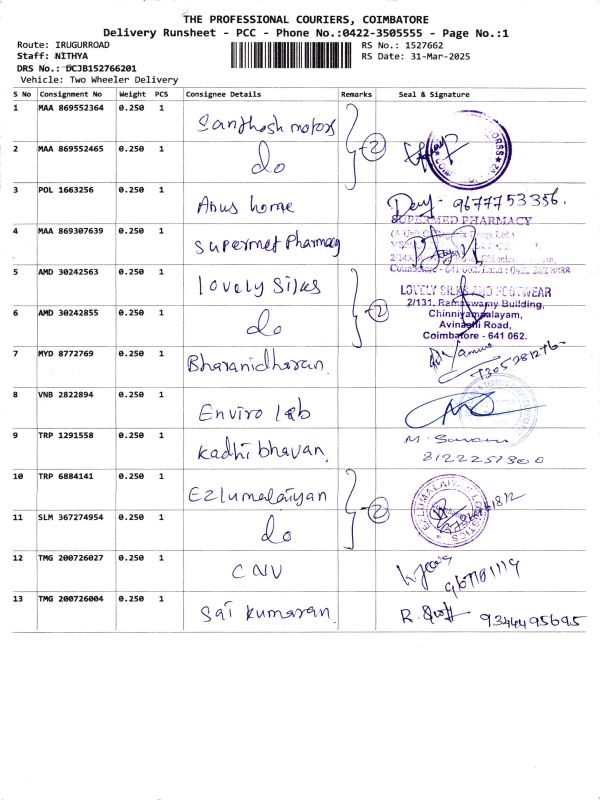 THE PROFESSIONAL COURIERS, COIMBATORE
Delivery Runsheet - PCC - Phone No.:0422-3505555 - Page No.:1
Route: IRUGURROAD
RS No.: 1527662
Staff: NITHYA
RS Date: 31-Mar-2025
DRS No.: DCJB152766201
Vehicle: Two Wheeler Delivery
S No Consignment No Weight PCS Consignee Details Remarks Seal & Signature
1 MAA 869552364 0.250 1 Santhosh motors
2 MAA 869552465 0.250 1 do 2
3 POL 1663256 0.250 1 Anus home 9677753356.
SUPERMED PHARMACY
4 MAA 869307639 0.250 1 Supermet Pharmacy
Coimbatore - 641 062.
5 AMD 30242563 0.250 1 lovely Silks
LOVELY SILKS AND FOOTWEAR
2/131, Ramaswamy Building,
Chinniyampalayam,
6 AMD 30242855 0.250 1 do 2
Avinashi Road,
Coimbatore - 641 062.
7 MYD 8772769 0.250 1 Bharanidharan.
8 VNB 2822894 0.250 1 Enviro lab
9 TRP 1291558 0.250 1 Kadhi bhavan.
8122251300
10 TRP 6884141 0.250 1 Ezlumalaiyan
11 SLM 367274954 0.250 1 do 2
12 TMG 200726027 0.250 1 CNV
13 TMG 200726004 0.250 1 Sai Kumaran. 9344495695